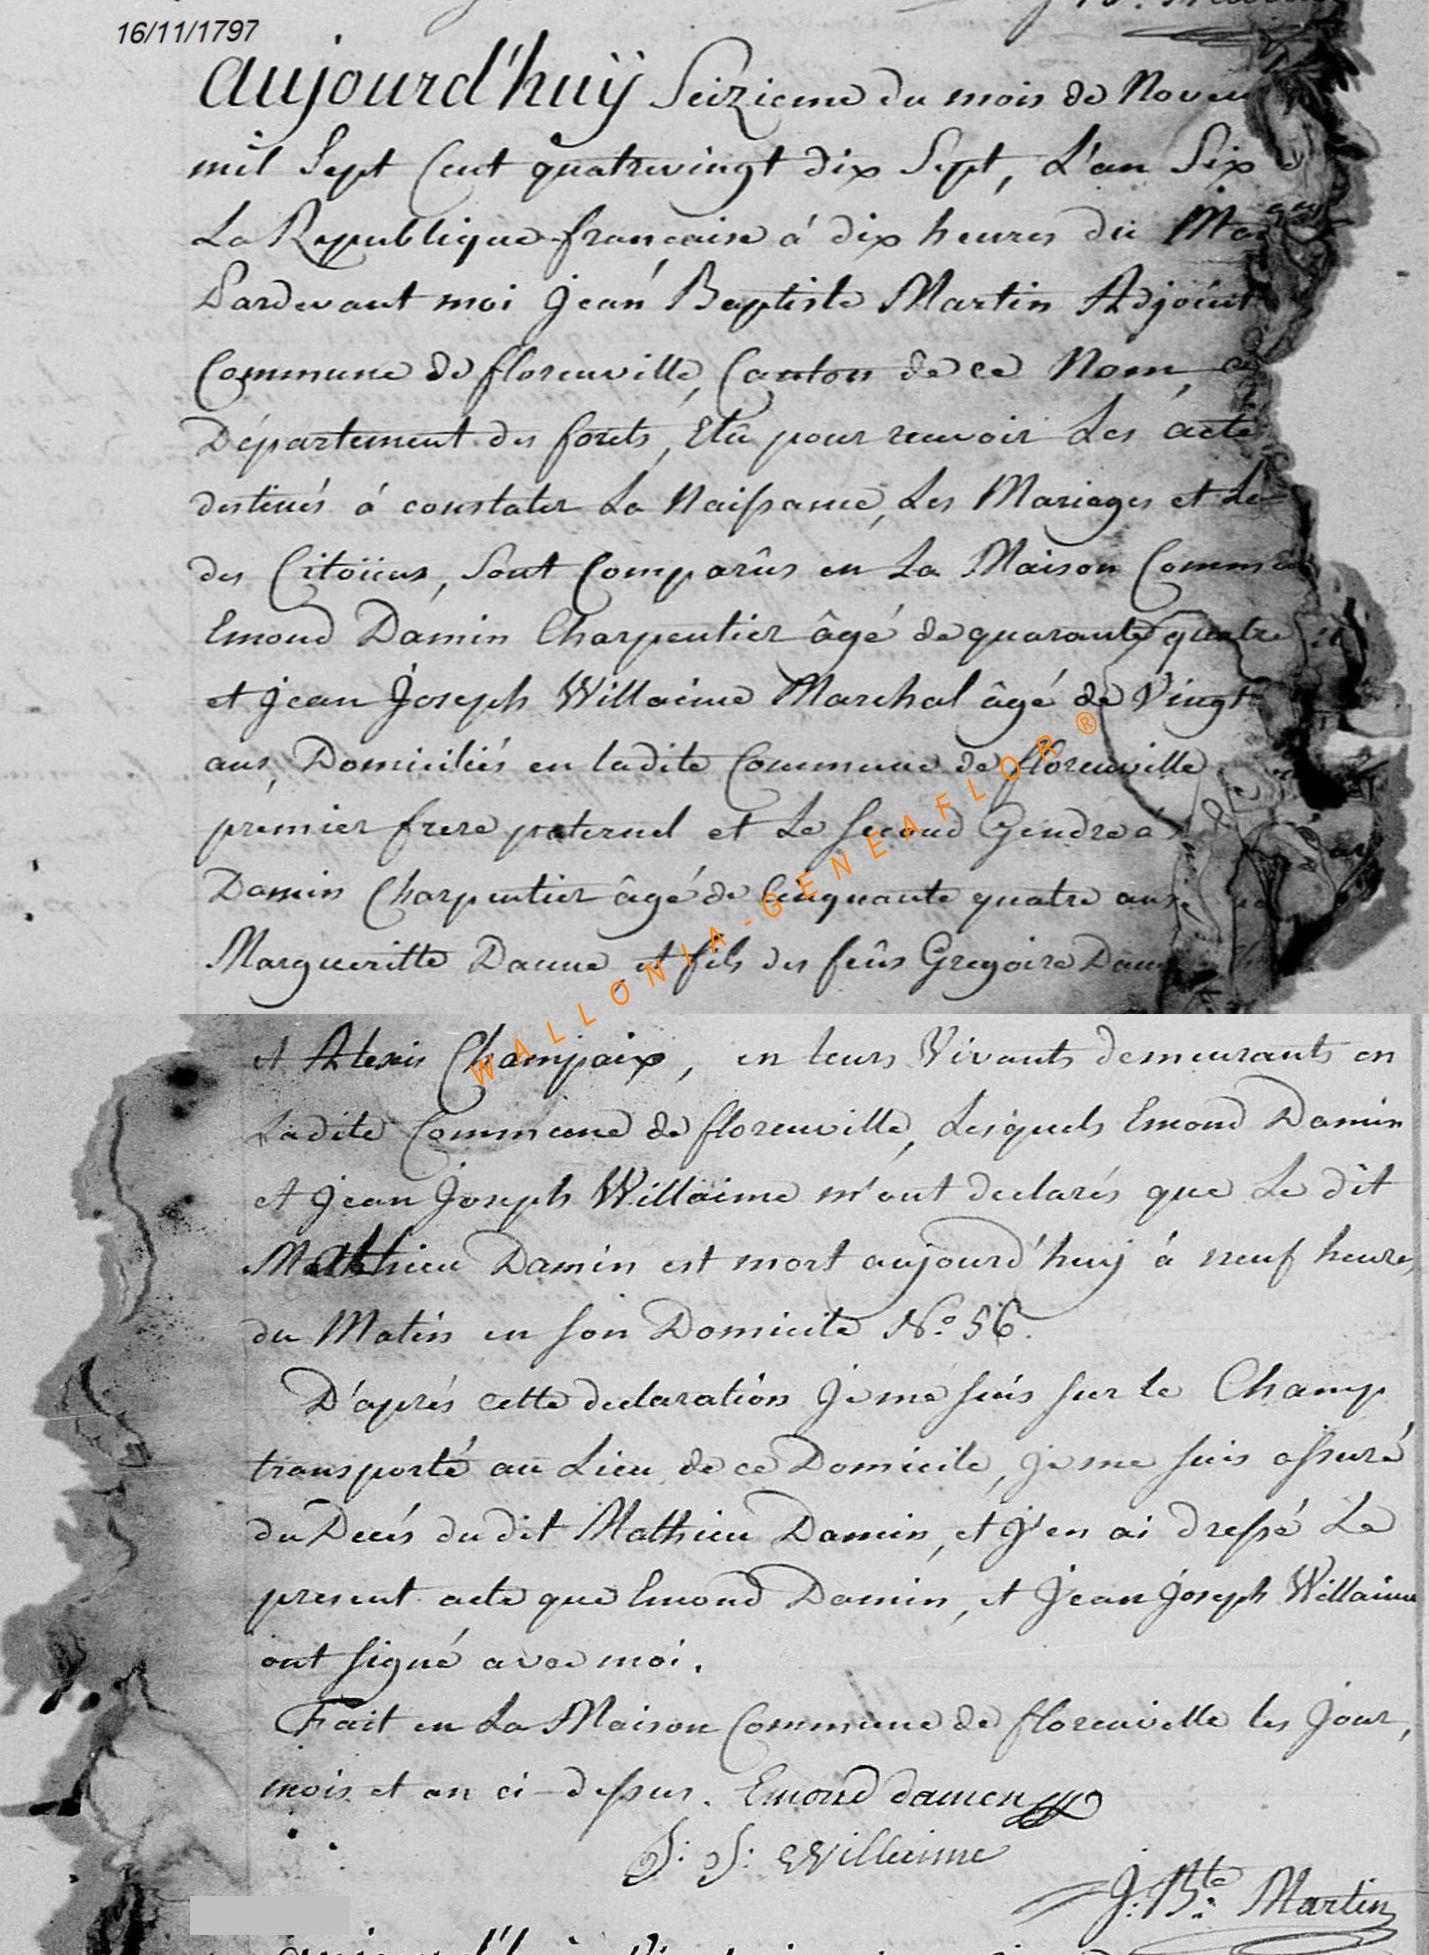 16/11/1797
aujourd'huÿ Seizieme du mois de Novem
mil Sept Cent quatrevingt dix Sept, L'an Six
La Republique francaise á dix heures du Ma
Pardevant moi Jean Baptiste Martin Adjoint
Commune de florenville, Canton de ce Nom,
Département des forets, Elu pour recevoir Les acte
destinés á constater La Naissance, Les Mariages et Le
des Citoïens, Sont Comparûs en La Maison Commu
Emond Damin Charpentier âgé de quarante quatre
et Jean Joseph Willaime Marchal âgé de Vingt
ans, Domiciliés en ladite Commune de florenville
premier frere paternel et Le Second Gendre á
Damin Charpentier âgé de Cinquante quatre ans
Margueritte Daune et fils des feûs Gregoire Dam
et Alexis Champaix, en leurs Vivants demeurants en
Ladite Commune de florenville, Lesquels Emond Damin
et Jean Joseph Willaime m'ont declarés que Le dit
Mathieu Damin est mort aujourd'huy á neuf heures
du Matin en Son Domicile N.º 56.
D'aprés cette declaration Je me Suis Sur le Champ
transporté au Lieu de ce Domicile, Je me Suis assuré
du Decés du dit Mathieu Damin, et J'en ai dressé Le
present acte que Emond Damin, et Jean Joseph Willaime
ont Signé avec moi.
Fait en La Maison Commune de florenville les Jour,
mois et an ci-dessus. Emond damen
J: J: Willaime
J: B:te Martin
WALLONIA-GENEAFLOR ®